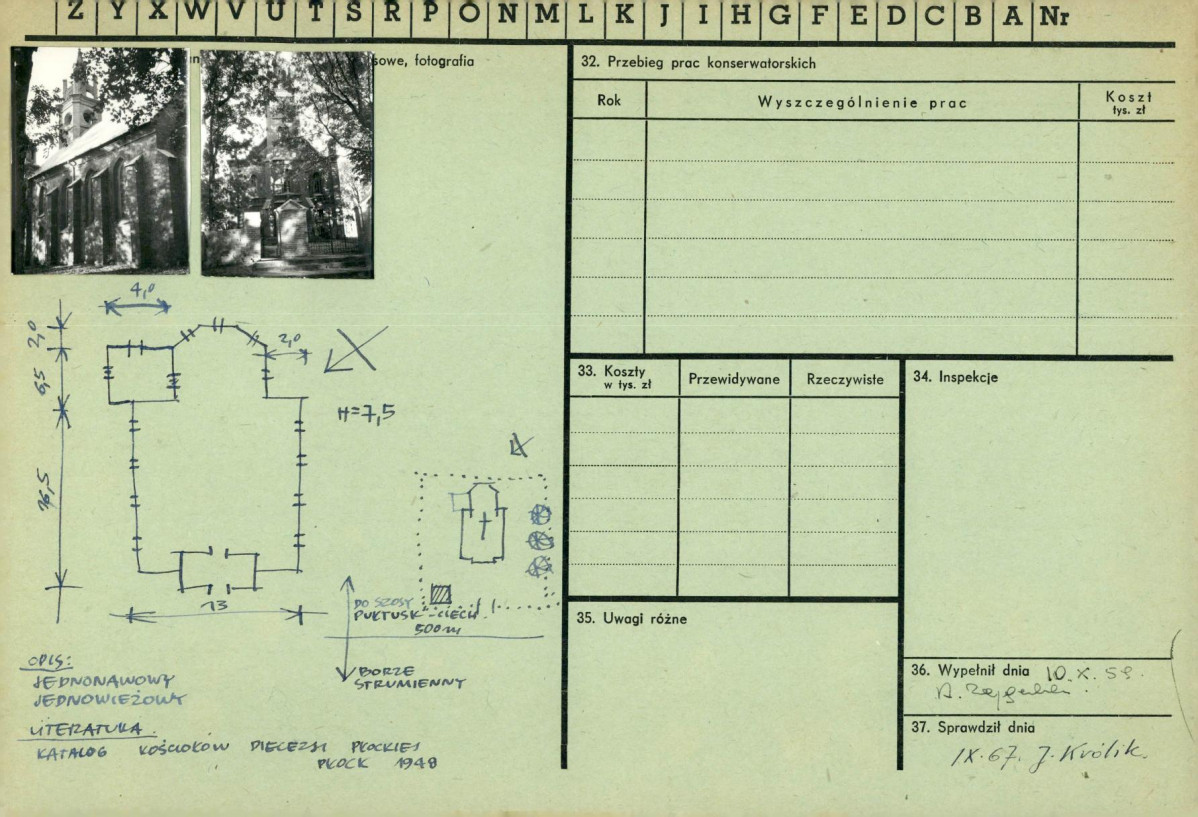 Z Y X W V U T S R P O N M L K J I H G F E D C B A Nr
sowe, fotografia
4,0
2,0
2,0
6,5
H=7,5
16,5
13
DO SZOSY
PUŁTUSK - CIECH.
500 m
BORZE
STRUMIENNY
OPIS:
JEDNONAWOWY
JEDNOWIEŻOWY
LITERATURA.
KATALOG KOŚCIOŁÓW DIECEZJI PŁOCKIEJ
PŁOCK 1948
32. Przebieg prac konserwatorskich
Rok
Wyszczególnienie prac
Koszt
tys. zł
33. Koszty
w tys. zł
Przewidywane
Rzeczywiste
34. Inspekcje
35. Uwagi różne
36. Wypełnił dnia 10.X.59.
37. Sprawdził dnia
IX.67. J. Królik.